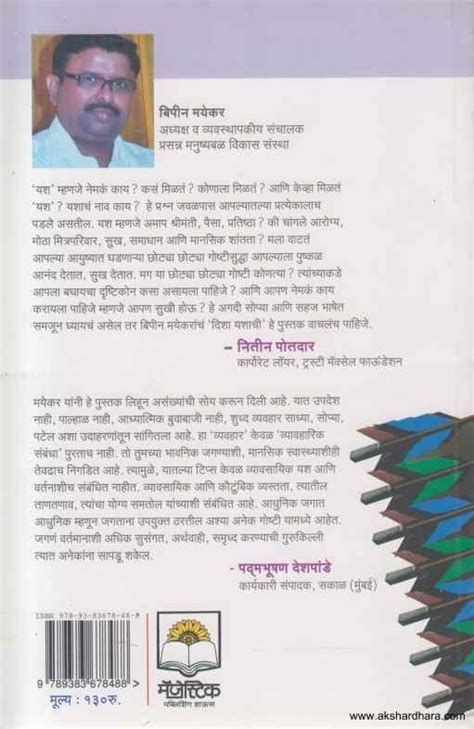 बिपीन मयेकर
अध्यक्ष व व्यवस्थापकीय संचालक
प्रसन्न मनुष्यबळ विकास संस्था
'यश' म्हणजे नेमकं काय? कसं मिळतं? कोणाला मिळतं? आणि केव्हा मिळतं
'यश'? यशाचं नाव काय? हे प्रश्न जवळपास आपल्यातल्या प्रत्येकालाच
पडले असतील. यश म्हणजे अमाप श्रीमंती, पैसा, प्रतिष्ठा? की चांगले आरोग्य,
मोठा मित्रपरिवार, सुख, समाधान आणि मानसिक शांतता? मला वाटतं
आपल्या आयुष्यात घडणाऱ्या छोट्या छोट्या गोष्टीसुद्धा आपल्याला पुष्कळ
आनंद देतात, सुख देतात. मग या छोट्या छोट्या गोष्टी कोणत्या? त्यांच्याकडे
आपला बघायचा दृष्टिकोन कसा असायला पाहिजे? आणि आपण नेमकं काय
करायला पाहिजे म्हणजे आपण सुखी होऊ? हे अगदी सोप्या आणि सहज भाषेत
समजून घ्यायचं असेल तर बिपीन मयेकरांचं 'दिशा यशाची' हे पुस्तक वाचलंच पाहिजे.
– नितीन पोतदार
कार्पोरेट लॉयर, ट्रस्टी मॅक्सेल फाऊंडेशन
मयेकर यांनी हे पुस्तक लिहून असंख्यांची सोय करून दिली आहे. यात उपदेश
नाही, पाल्हाळ नाही, आध्यात्मिक बुवाबाजी नाही, शुध्द व्यवहार साध्या, सोप्या,
पटेल अशा उदाहरणांतून सांगितला आहे. हा 'व्यवहार' केवळ 'व्यावहारिक
संबंधा' पुरताच नाही. तो तुमच्या भावनिक जगण्याशी, मानसिक स्वास्थ्याशीही
तेवढाच निगडित आहे. त्यामुळे, यातल्या टिप्स केवळ व्यावसायिक यश आणि
वर्तनाशीच संबंधित नाहीत. व्यावसायिक आणि कौटुंबिक व्यस्तता, त्यातील
ताणतणाव, त्यांचा योग्य समतोल यांच्याशी संबंधित आहे. आधुनिक जगात
आधुनिक म्हणून जगताना उपयुक्त ठरतील अश्या अनेक गोष्टी यामध्ये आहेत.
जगणं वर्तमानाशी अधिक सुसंगत, अर्थवाही, समृध्द करण्याची गुरुकिल्ली
त्यात अनेकांना सापडू शकेल.
- पद्मभूषण देशपांडे
कार्यकारी संपादक, सकाळ (मुंबई)
ISBN 978-93-83678-48-8
9 789383 678488
मूल्य : १३०रु.
मॅजेस्टिक
पब्लिशिंग हाऊस
www.akshardhara.com